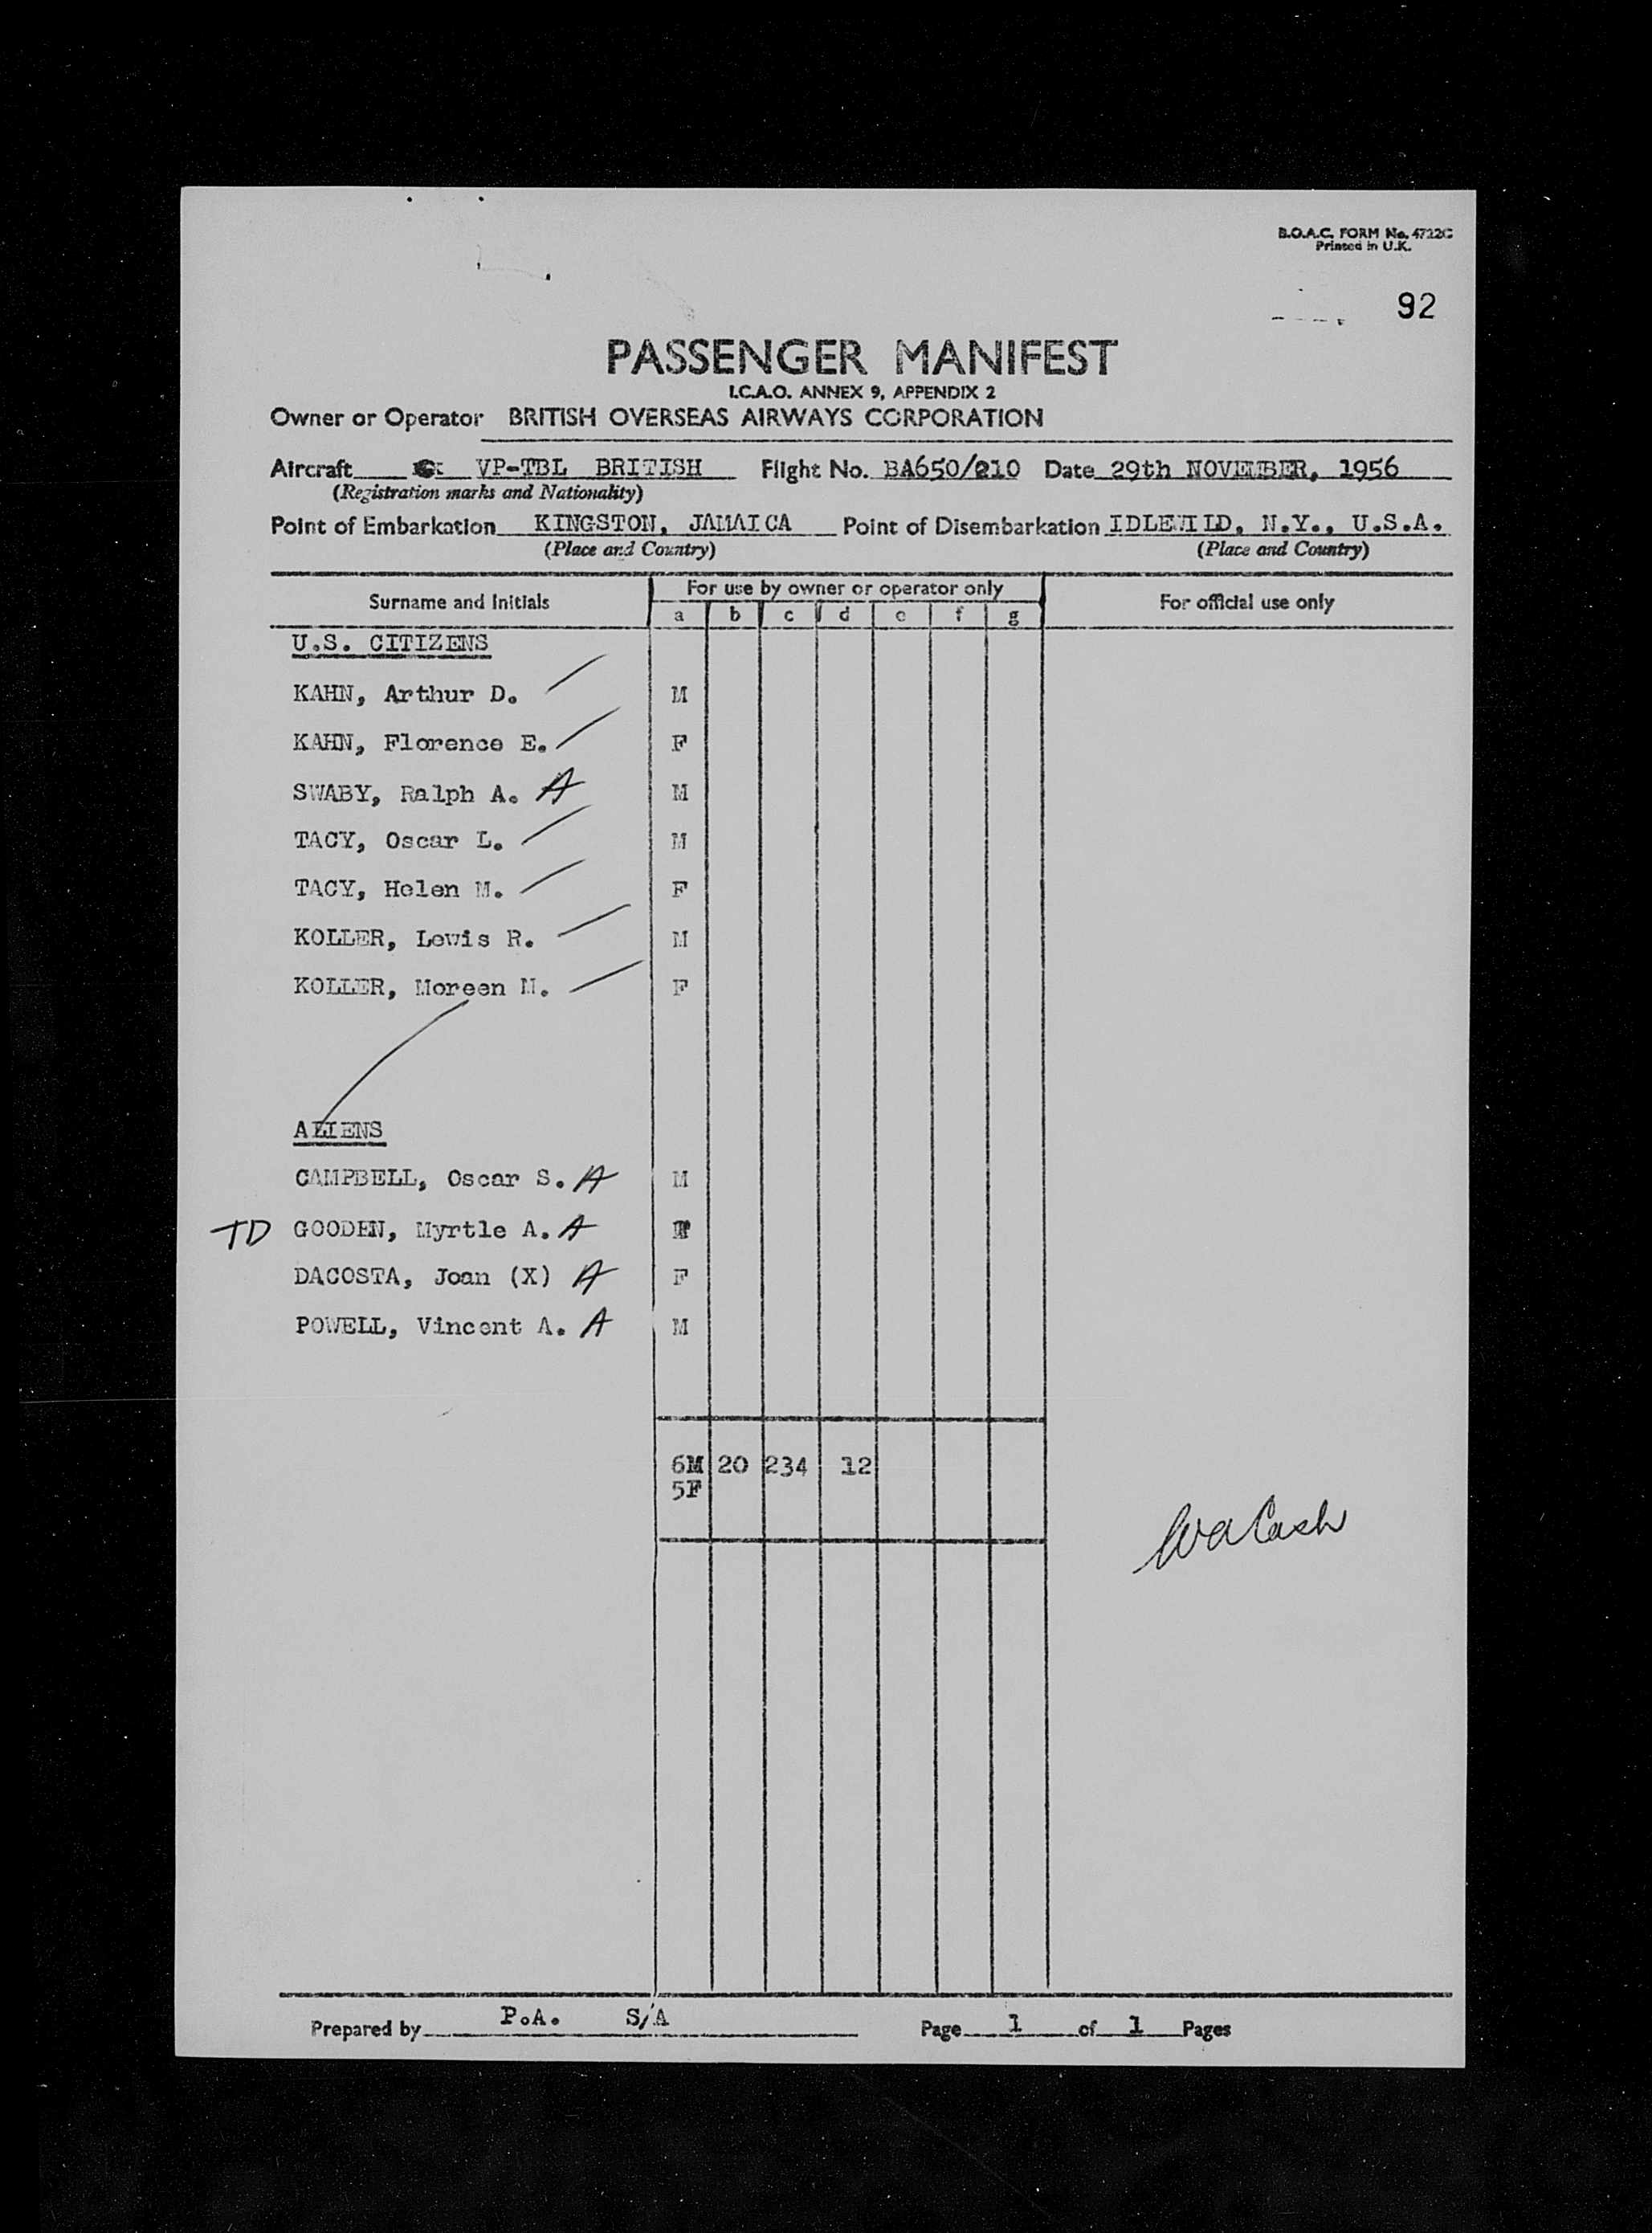 B.O.A.C. FORM No. 4722C
Printed in U.K.
92
PASSENGER MANIFEST
I.C.A.O. ANNEX 9, APPENDIX 2
Owner or Operator BRITISH OVERSEAS AIRWAYS CORPORATION
Aircraft VP-TBL BRITISH Flight No. BA650/210 Date 29th NOVEMBER, 1956
(Registration marks and Nationality)
Point of Embarkation KINGSTON, JAMAICA Point of Disembarkation IDLEWILD, N.Y., U.S.A.
(Place and Country) (Place and Country)
Surname and Initials For use by owner or operator only For official use only
a b c d e f g
U.S. CITIZENS
KAHN, Arthur D. M
KAHN, Florence E. F
SWABY, Ralph A. A M
TACY, Oscar L. M
TACY, Helen M. F
KOLLER, Lewis R. M
KOLLER, Moreen M. F
ALIENS
CAMPBELL, Oscar S. A M
TD GOODEN, Myrtle A. A F
DACOSTA, Joan (X) A F
POWELL, Vincent A. A M
6M 20 234 12
5F
WA Cash
Prepared by P.A. S/A Page 1 of 1 Pages